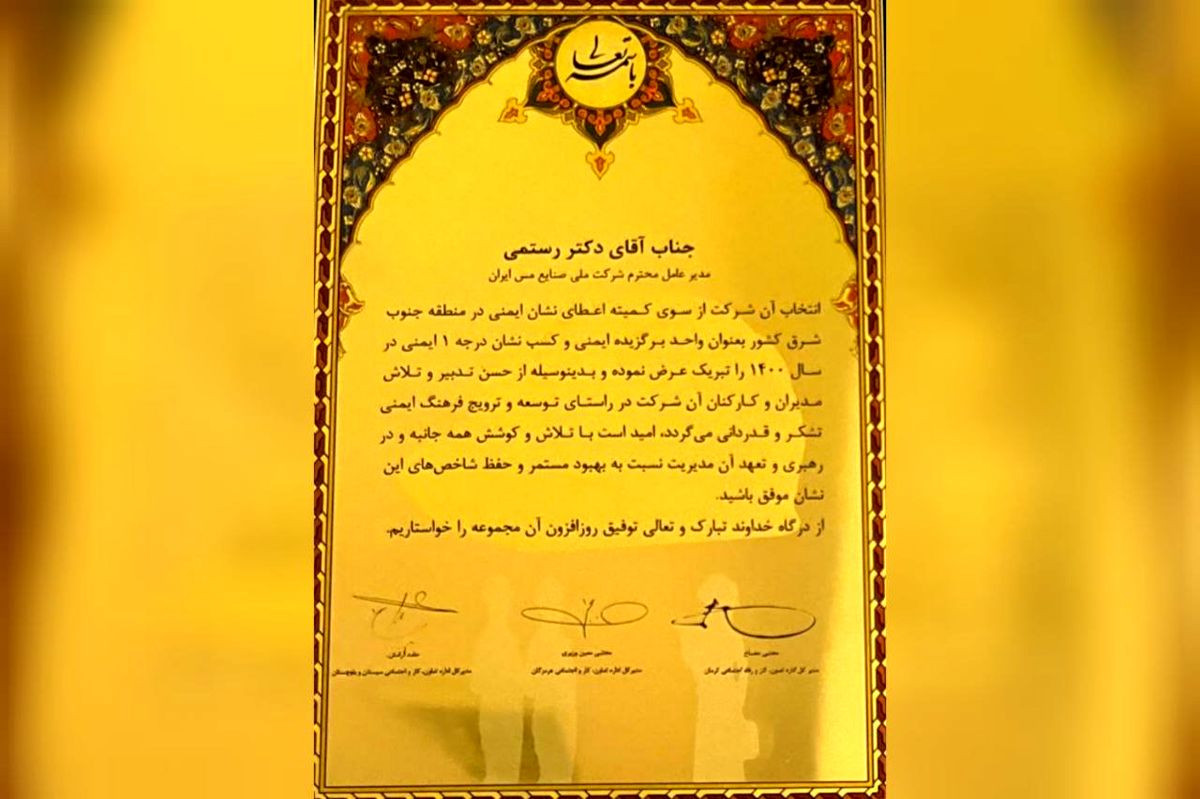 باسمه تعالی
جناب آقای دکتر رستمی
مدیر عامل محترم شرکت ملی صنایع مس ایران
انتخاب آن شرکت از سوی کمیته اعطای نشان ایمنی در منطقه جنوب
شرق کشور بعنوان واحد برگزیده ایمنی و کسب نشان درجه ۱ ایمنی در
سال ۱۴۰۰ را تبریک عرض نموده و بدینوسیله از حسن تدبیر و تلاش
مدیران و کارکنان آن شرکت در راستای توسعه و ترویج فرهنگ ایمنی
تشکر و قدردانی می‌گردد، امید است با تلاش و کوشش همه جانبه و در
رهبری و تعهد آن مدیریت نسبت به بهبود مستمر و حفظ شاخص‌های این
نشان موفق باشید.
از درگاه خداوند تبارک و تعالی توفیق روزافزون آن مجموعه را خواستاریم.
مجتبی
مدیر کل اداره تعاون، کار و رفاه اجتماعی کرمان
مجتبی معین وزیری
مدیرکل اداره تعاون، کار و اجتماعی هرمزگان
مدیرکل اداره تعاون، کار و اجتماعی سیستان و بلوچستان